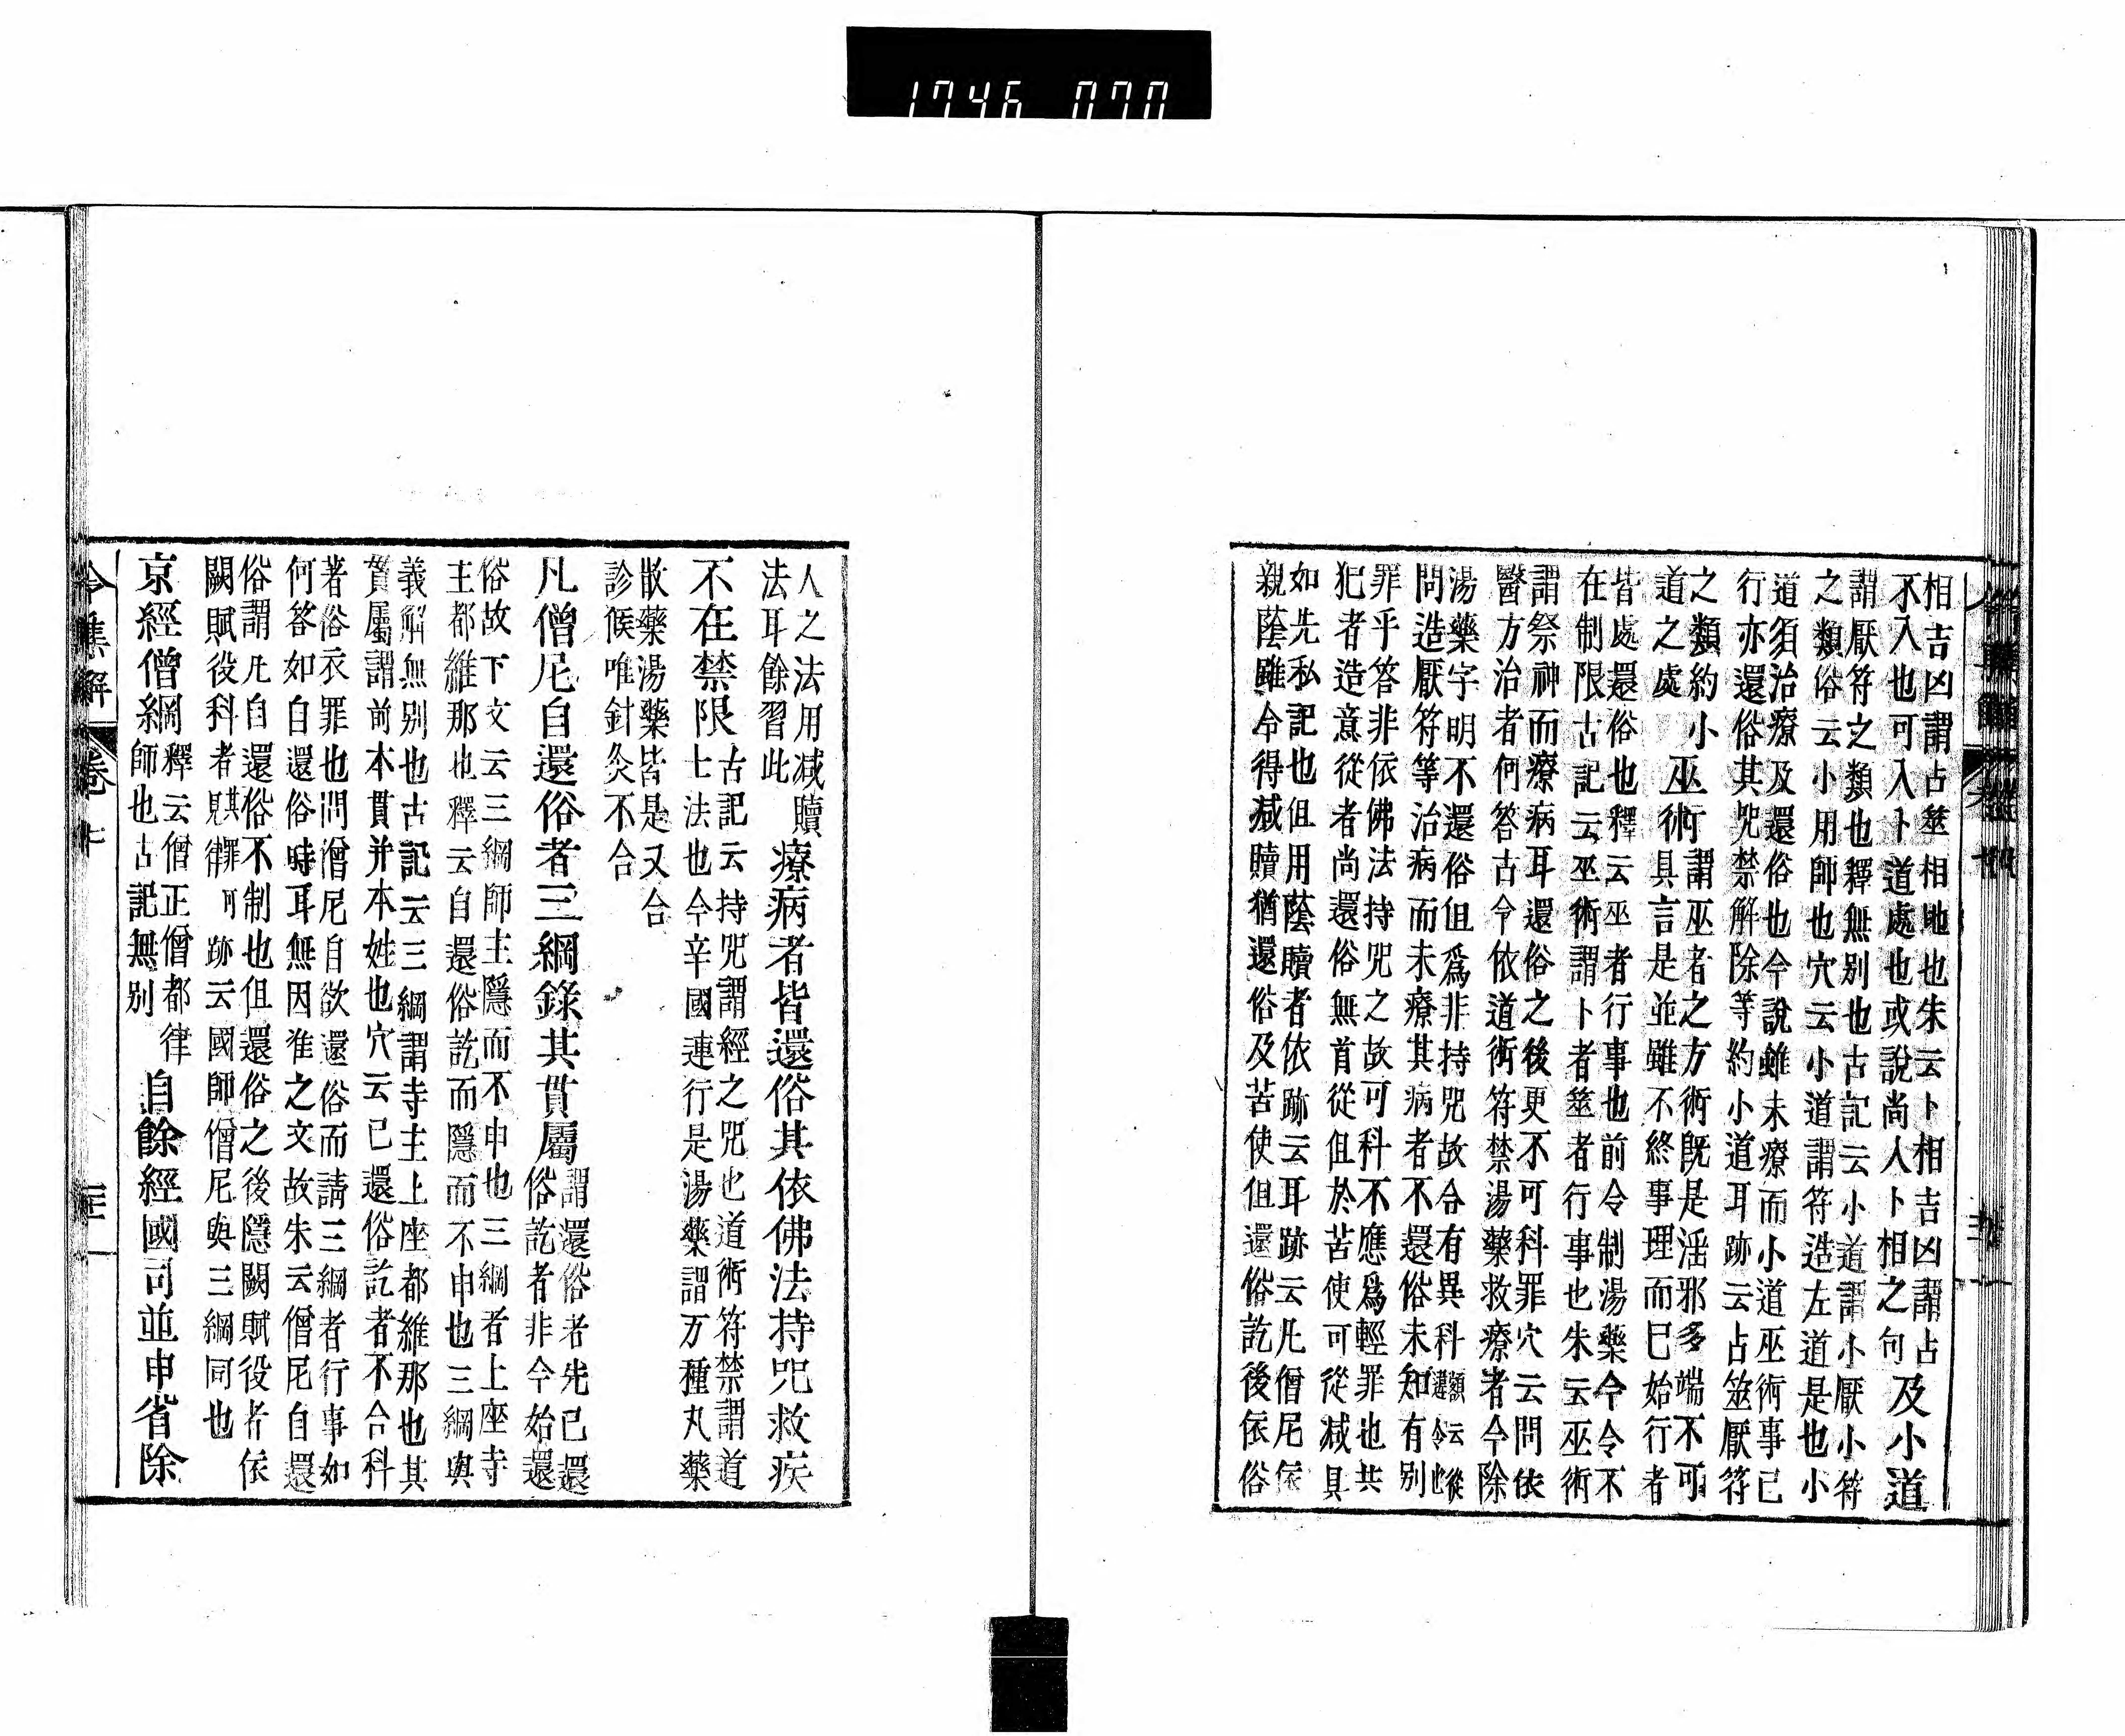 1746 070
相吉凶謂占筮相地也朱云卜相吉凶謂占
不入也可入卜道處也或說尚人卜相之句
及小道
謂厭符之類也釋無別也古記云小道謂小厭小符
之類俗云小用師也穴云小道謂符造左道是也小
道須治療及還俗也今說雖未療而小道巫術事已
行亦還俗其咒禁解除等約小道耳跡云占筮厭符
之類約小
道之處
巫術
謂巫者之方術既是淫邪多端不可
具言是並雖不終事理而已始行者
皆處還俗也釋云巫者行事也前令制湯藥今令不
在制限古記云巫術謂卜者筮者行事也朱云巫術
謂祭神而療病耳還俗之後更不可科罪穴云問依
醫方治者何答古今依道術符禁湯藥救療者今除
湯藥字明不還俗但爲非持咒故合有異科
問造厭符等治病而未療其病者不還俗未知有別
罪乎答非依佛法持咒之故可科不應爲輕罪也共
犯者造意從者尚還俗無首從但於苦使可從減具
如先私記也但用蔭贖者依跡云耳跡云凡僧尼依
親蔭雖令得減贖猶還俗及苦使但還俗訖後依俗
人之法用減贖
法耳餘習此
療病者皆還俗其依佛法持咒救疾
不在禁限
古記云持咒謂經之咒也道術符禁謂道
士法也今辛國連行是湯藥謂万種丸藥
散藥湯藥皆是又合
診候唯針灸不合
凡僧尼自還俗者三綱錄其貫屬
謂還俗者先已還
俗訖者非今始還
俗故下文云三綱師主隱而不申也三綱者上座寺
主都維那也釋云自還俗訖而隱而不申也三綱與
義解無別也古記云三綱謂寺主上座都維那也其
貫屬謂前本貫并本姓也穴云已還俗訖者不合科
著俗衣罪也問僧尼自欲還俗而請三綱者行事如
何答如自還俗時耳無因准之文故朱云僧尼自還
俗謂凡自還俗不制也但還俗之後隱闕賦役者依
闕賦役科者其罪見律可跡云國師僧尼與三綱同也
京經僧綱
釋云僧正僧都律
師也古記無別
自餘經國司並申省除
令集解
卷七